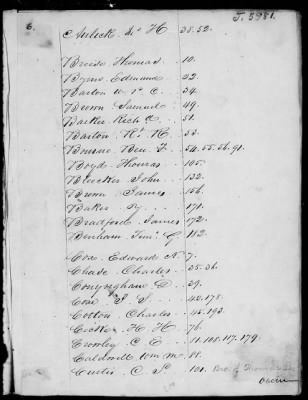 6.
J. 5981.
Aulick Jno H 38. 52.
Breese Thomas 10.
Byrne Edmund 22.
Barton W. P. C. 34.
Brown Samuel 49.
Barker 51.
Barton R. H. 53.
Bourne Ben. F. 54. 55. 56. 91.
Boyd Thomas 105.
Bleecker John 132.
Brown James 156.
Baker 171.
Bradford James 172.
Benham Timy G 182.
Cox Edward N. 7.
Chase Charles 35. 36.
Conyngham D. 39.
Cotton Charles 45. 193.
H H 76.
Crowley C. E. 11. 108. 117. 179.
Caldwell Wm M. 88.
Curtis C. S. 101.